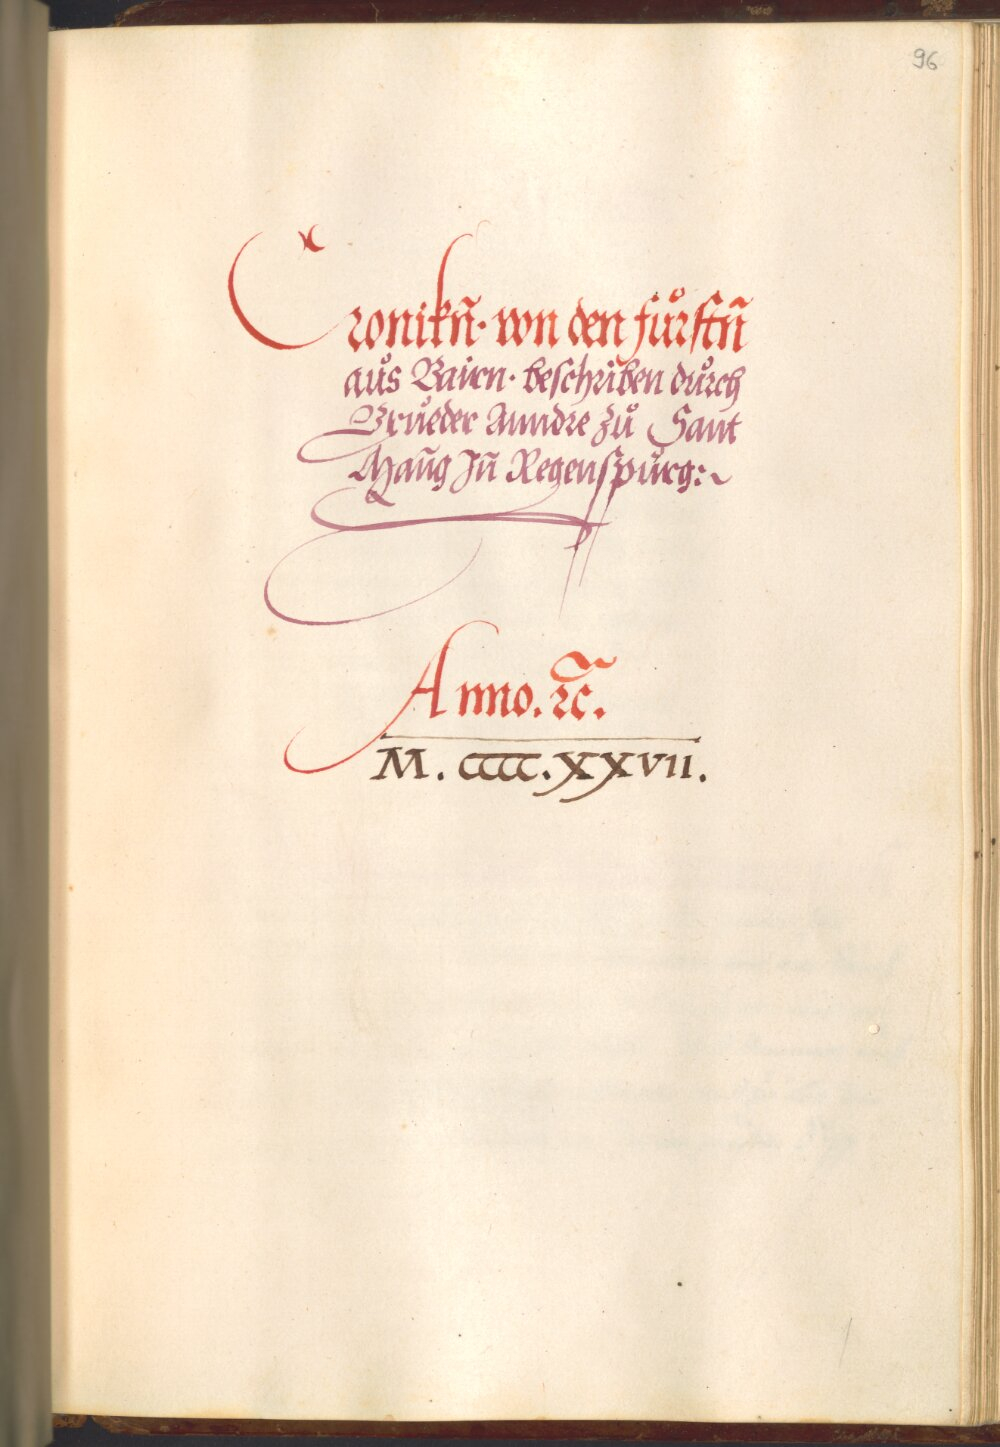 96
Cronikn̄· von den fůrstn̄
aůs Bairn· beschriben důrch
Brůeder Anndre zů Sant
Maūg Jn̄ Regenspůrg:~
Anno. ꝛc̄.
M. CCCC. XXVII.